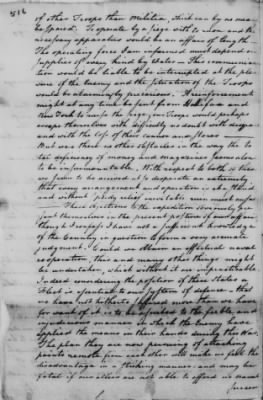 516
of other Troops than Militia, which can by no means
be spared. To operate by a siege with the
necessary apparatus would be an affair of length.
The operating force I am informed must depend on
supplies of every kind by Water. This communica-
tion would be liable to be intercepted at the plea-
sure of the Enemy and the situation of the Troops
would be alarmingly precarious. A reinforcement
might at any time be sent from Halifax and
New York to raise the siege; our Troops would perhaps
escape themselves with difficulty no doubt with disgrace
and with the loss of their cannon and stores
But was there no other obstacle in the way the to-
tal deficiency of money and magazines seems alone
to be insurmountable. With respect to both we
are to be so desperate an extremity
that every arrangement and operation is at a stand
and without speedy relief inevitable ruin must ensue
These objections to the expedition
themselves in the present posture of our affairs
though perhaps I have not a sufficient knowledge
of the Country in question to form a very accurate
judgment. Could we obtain an effectual naval
cooperation, this and many other things might
be undertaken, which without it are impracticable.
Indeed considering the position of these States a
fleet is essential to our system of defence; that
we have not hitherto suffered more than we have
for want of it is to be ascribed to the feeble and
injudicious manner in which the Enemy have
applied the means in their hands during this War.
The plan they are now pursuing of attacking
points remote from each other will make us feel the
disadvantage in a striking manner; and may be
fatal if our allies are not able to afford us naval
succor